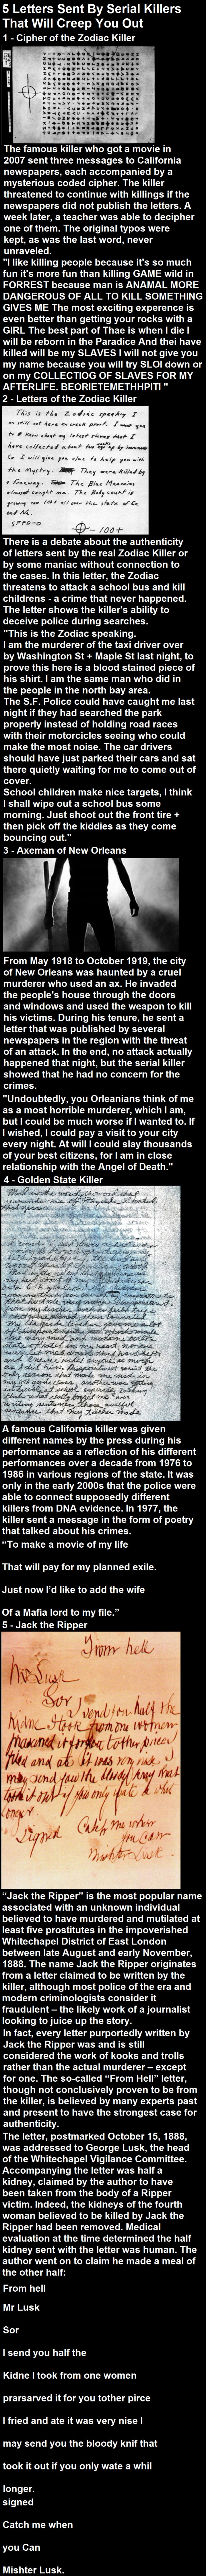 5 Letters Sent By Serial Killers
That Will Creep You Out
1 - Cipher of the Zodiac Killer
The famous killer who got a movie in
2007 sent three messages to California
newspapers, each accompanied by a
mysterious coded cipher. The killer
threatened to continue with killings if the
newspapers did not publish the letters. A
week later, a teacher was able to decipher
one of them. The original typos were
kept, as was the last word, never
unraveled.
"I like killing people because it's so much
fun it's more fun than killing GAME wild in
FORREST because man is ANAMAL MORE
DANGEROUS OF ALL TO KILL SOMETHING
GIVES ME The most exciting experence is
even better than getting your rocks with a
GIRL The best part of Thae is when I die I
will be reborn in the Paradice And thei have
killed will be my SLAVES I will not give you
my name because you will try SLOI down or
on my COLLECTIOG OF SLAVES FOR MY
AFTERLIFE. BEORIETEMETHHPITI "
2 - Letters of the Zodiac Killer
This is the Zodiac speaking I
There is a debate about the authenticity
of letters sent by the real Zodiac Killer or
by some maniac without connection to
the cases. In this letter, the Zodiac
threatens to attack a school bus and kill
childrens - a crime that never happened.
The letter shows the killer's ability to
deceive police during searches.
"This is the Zodiac speaking.
I am the murderer of the taxi driver over
by Washington St + Maple St last night, to
prove this here is a blood stained piece of
his shirt. I am the same man who did in
the people in the north bay area.
The S.F. Police could have caught me last
night if they had searched the park
properly instead of holding road races
with their motorcicles seeing who could
make the most noise. The car drivers
should have just parked their cars and sat
there quietly waiting for me to come out of
cover.
School children make nice targets, I think
I shall wipe out a school bus some
morning. Just shoot out the front tire +
then pick off the kiddies as they come
bouncing out."
3 - Axeman of New Orleans
From May 1918 to October 1919, the city
of New Orleans was haunted by a cruel
murderer who used an ax. He invaded
the people's house through the doors
and windows and used the weapon to kill
his victims. During his tenure, he sent a
letter that was published by several
newspapers in the region with the threat
of an attack. In the end, no attack actually
happened that night, but the serial killer
showed that he had no concern for the
crimes.
"Undoubtedly, you Orleanians think of me
as a most horrible murderer, which I am,
but I could be much worse if I wanted to. If
I wished, I could pay a visit to your city
every night. At will I could slay thousands
of your best citizens, for I am in close
relationship with the Angel of Death."
4 - Golden State Killer
A famous California killer was given
different names by the press during his
performance as a reflection of his different
performances over a decade from 1976 to
1986 in various regions of the state. It was
only in the early 2000s that the police were
able to connect supposedly different
killers from DNA evidence. In 1977, the
killer sent a message in the form of poetry
that talked about his crimes.
“To make a movie of my life
That will pay for my planned exile.
Just now I'd like to add the wife
Of a Mafia lord to my file.”
5 - Jack the Ripper
From hell
Mr Lusk
Sor
I send you half the
Kidne I took from one women
prasarved it for you tother piece
I fried and ate it was very nise I
may send you the bloody knif that
took it out if you only wate a whil
longer.
Signed Catch me when
you Can
Mishter Lusk.
“Jack the Ripper” is the most popular name
associated with an unknown individual
believed to have murdered and mutilated at
least five prostitutes in the impoverished
Whitechapel District of East London
between late August and early November,
1888. The name Jack the Ripper originates
from a letter claimed to be written by the
killer, although most police of the era and
modern criminologists consider it
fraudulent – the likely work of a journalist
looking to juice up the story.
In fact, every letter purportedly written by
Jack the Ripper was and is still
considered the work of kooks and trolls
rather than the actual murderer – except
for one. The so-called “From Hell” letter,
though not conclusively proven to be from
the killer, is believed by many experts past
and present to have the strongest case for
authenticity.
The letter, postmarked October 15, 1888,
was addressed to George Lusk, the head
of the Whitechapel Vigilance Committee.
Accompanying the letter was half a
kidney, claimed by the author to have
been taken from the body of a Ripper
victim. Indeed, the kidneys of the fourth
woman believed to be killed by Jack the
Ripper had been removed. Medical
evaluation at the time determined the half
kidney sent with the letter was human. The
author went on to claim he made a meal of
the other half:
From hell
Mr Lusk
Sor
I send you half the
Kidne I took from one women
prarsarved it for you tother pirce
I fried and ate it was very nise I
may send you the bloody knif that
took it out if you only wate a whil
longer.
signed
Catch me when
you Can
Mishter Lusk.